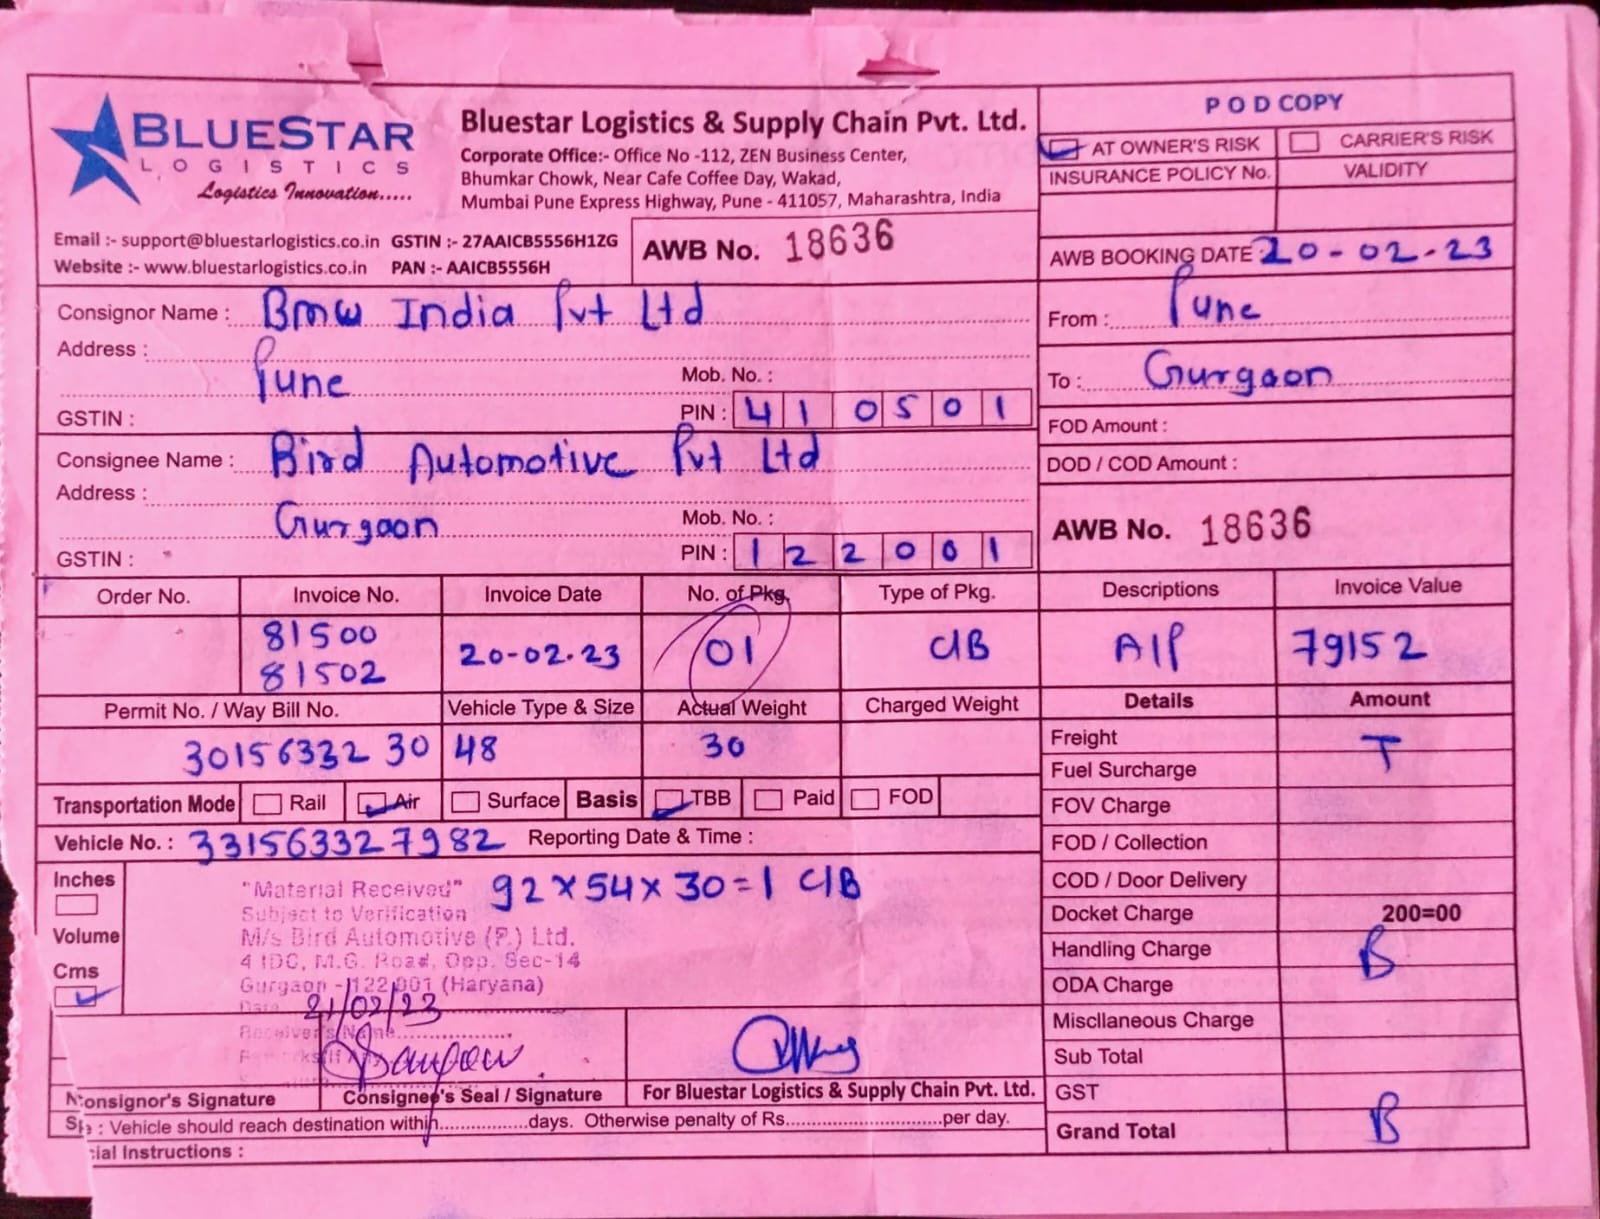 BLUESTAR
LOGISTICS
Logistics Innovation.....
Bluestar Logistics & Supply Chain Pvt. Ltd.
Corporate Office:- Office No -112, ZEN Business Center,
Bhumkar Chowk, Near Cafe Coffee Day, Wakad,
Mumbai Pune Express Highway, Pune - 411057, Maharashtra, India
Email :- support@bluestarlogistics.co.in GSTIN :- 27AAICB5556H1ZG
Website :- www.bluestarlogistics.co.in PAN :- AAICB5556H
AWB No. 18636
P O D COPY
AT OWNER'S RISK CARRIER'S RISK
INSURANCE POLICY No. VALIDITY
AWB BOOKING DATE : 20-02-23
Consignor Name : Bmw India Pvt Ltd
Address :
Pune Mob. No. :
GSTIN : PIN : 410501
From : Pune
To : Gurgaon
FOD Amount :
DOD / COD Amount :
Consignee Name : Bird Automotive Pvt Ltd
Address :
Gurgaon Mob. No. :
GSTIN : PIN : 122001
AWB No. 18636
Order No. Invoice No. Invoice Date No. of Pkg. Type of Pkg. Descriptions Invoice Value
81500
81502 20-02-23 01 C/B A/P 79152
Permit No. / Way Bill No. Vehicle Type & Size Actual Weight Charged Weight Details Amount
30156332 30 48 30
Freight T
Fuel Surcharge
Transportation Mode Rail Air Surface Basis TBB Paid FOD
FOV Charge
Vehicle No. : 331563327982 Reporting Date & Time :
FOD / Collection
Inches
Volume
Cms
92 x 54 x 30 = 1 C/B
"Material Received"
Subject to Verification
M/s Bird Automotive (P.) Ltd.
4 IDC, M.G. Road, Opp. Sec-14
Gurgaon - 122 001 (Haryana)
Date 21/02/23
Receiver's Name
COD / Door Delivery
Docket Charge 200=00
Handling Charge B
ODA Charge
Miscllaneous Charge
Sub Total
GST
Grand Total B
onsignor's Signature Consignee's Seal / Signature For Bluestar Logistics & Supply Chain Pvt. Ltd.
: Vehicle should reach destination within................days. Otherwise penalty of Rs............................per day.
ial Instructions :